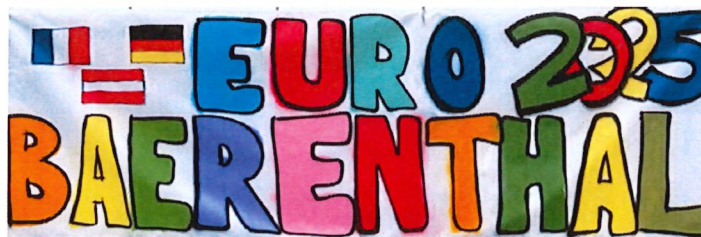 EURO 2025
BAERENTHAL